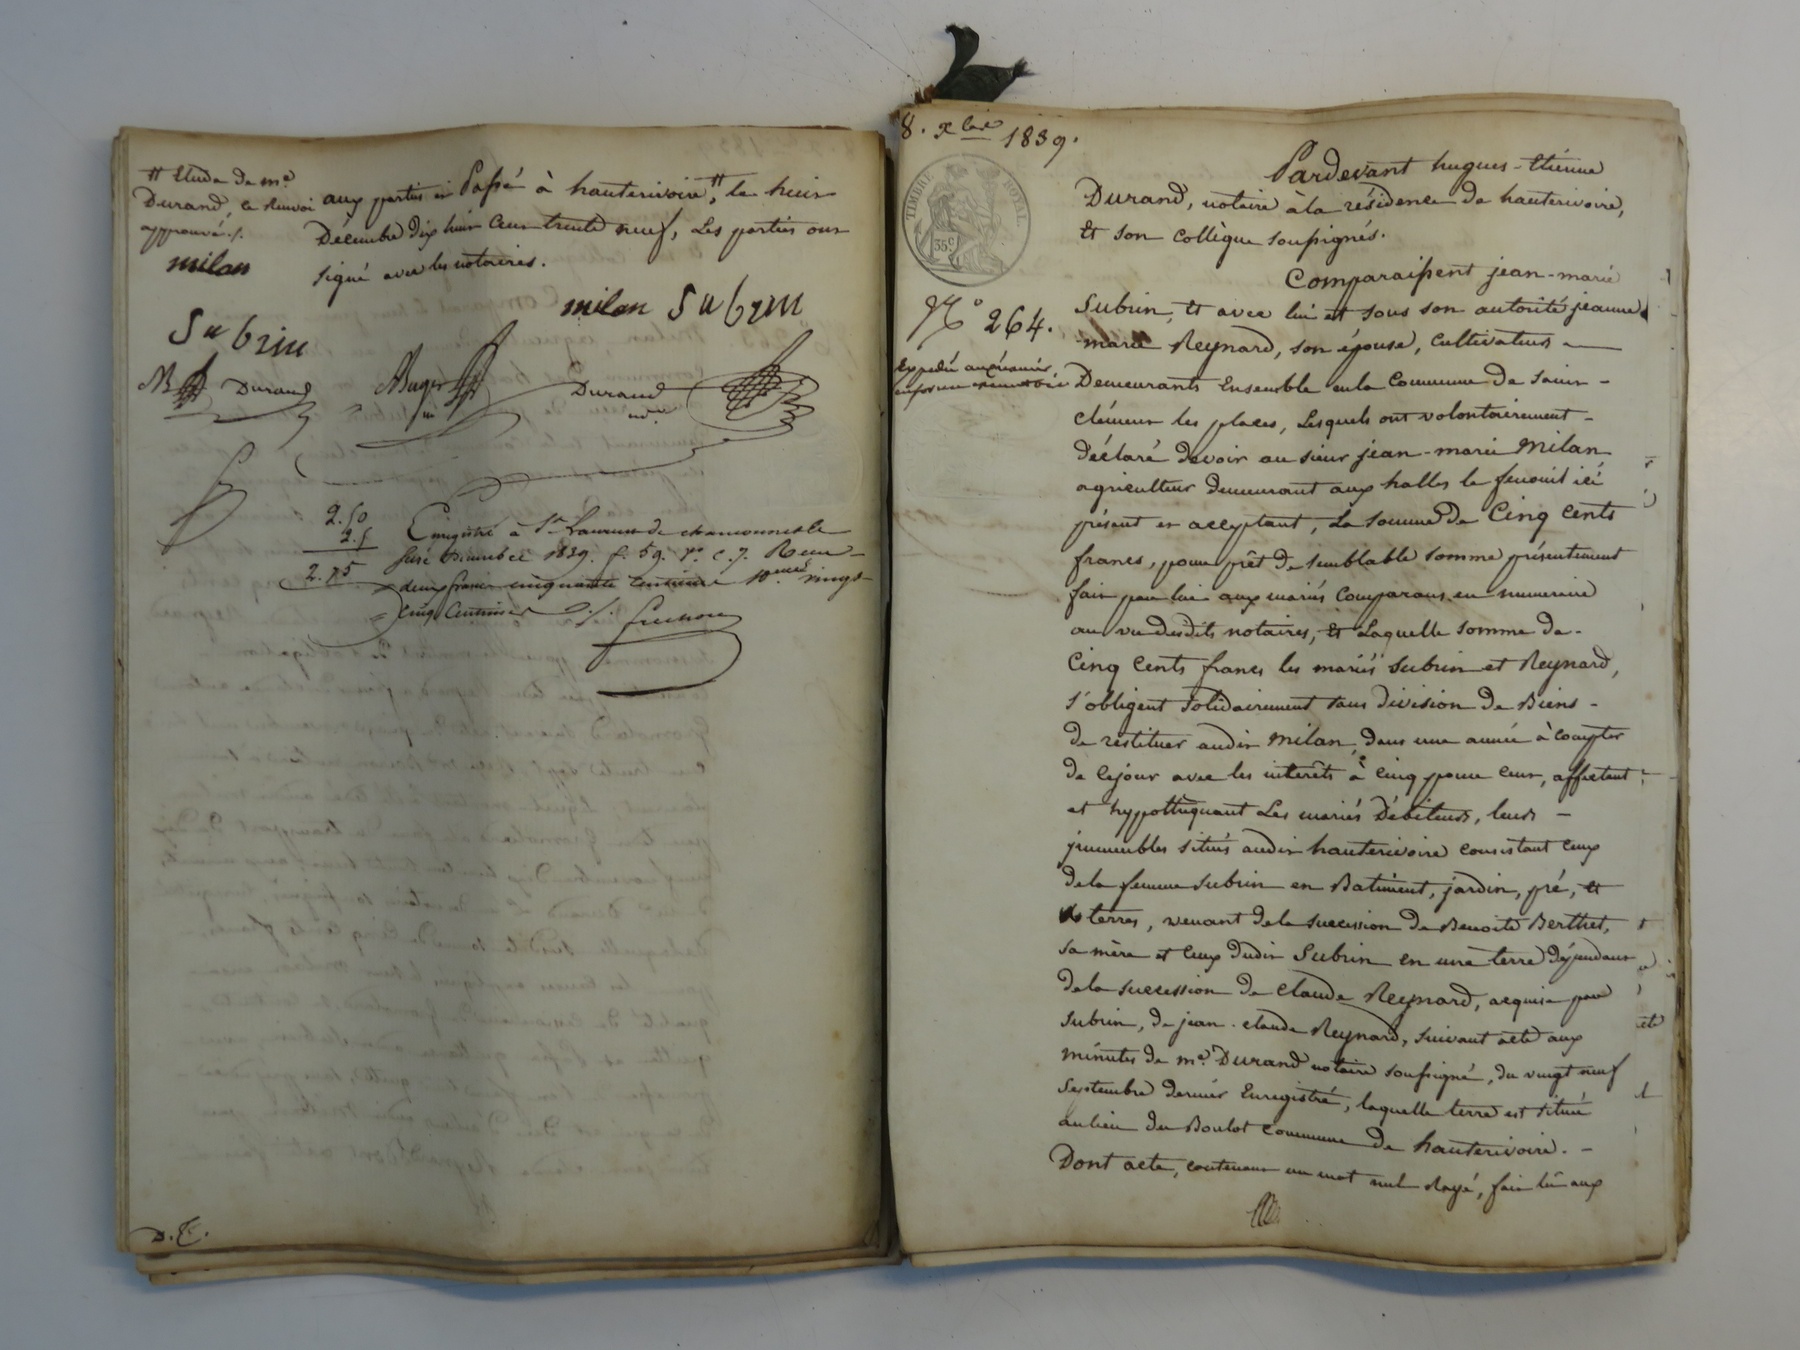 # Etude de me
Durand, ce renvoi
approuvé ./.
milan
aux parties ici Passé à hauterivoire, # le huit
Décembre dix huit cent trente neuf, Les parties ont
signé avec les notaires.
milan Subrin
Subrin
Durand
Durand
nre
2.50
2.5
2.75
Enregistré à St Laurent de chamousset le
seize Décembre 1839. f. 59. ro c. 7. Reçu
deux francs cinquante centimes 10eme vingt
= cinq centimes
D. R.
8. xbre 1839.
TIMBRE ROYAL
35c
No 264.
Expédié au créancier,
en forme exécutoire
Pardevant hugues-étienne
Durand, notaire à la résidence de hauterivoire,
et son collègue soussignés.
Comparaissent jean-marie
Subrin, et avec lui et sous son autorité jeanne
marie Reynard, son épouse, cultivateurs
Demeurants Ensemble en la Commune de saint-
clément les places, Lesquels ont volontairement-
déclaré devoir au sieur jean-marie Milan
agriculteur demeurant aux halles le fenouil ici
présent et acceptant, La somme de Cinq Cents
francs, pour prêt de semblable somme présentement
fait par lui aux mariés Comparans en numeraire
au vu desdits notaires, et Laquelle somme de-
Cinq Cents francs les mariés Subrin et Reynard,
s'obligent solidairement sans division de Biens-
de restituer audit Milan, dans une année à compter
de ce jour avec les intérêts à cinq pour cent, affectant
et hypothéquant Les mariés Débiteurs, leurs -
jmmeubles situés audit hauterivoire consistant ceux
de la femme Subrin en Batiment, jardin, pré, et
terres, venant de la succession de Benoite Berthet,
sa mère et ceux dudit Subrin en une terre dépendant
de la succession de claude Reynard, acquise par
Subrin, de jean-claude Reynard, suivant acte aux
minutes de me Durand notaire soussigné, du vingt neuf
septembre dernier Enregistré, laquelle terre est située
au lieu du Boulot commune de hauterivoire. -
Dont acte, contenant un mot nul Rayé, fait lu aux